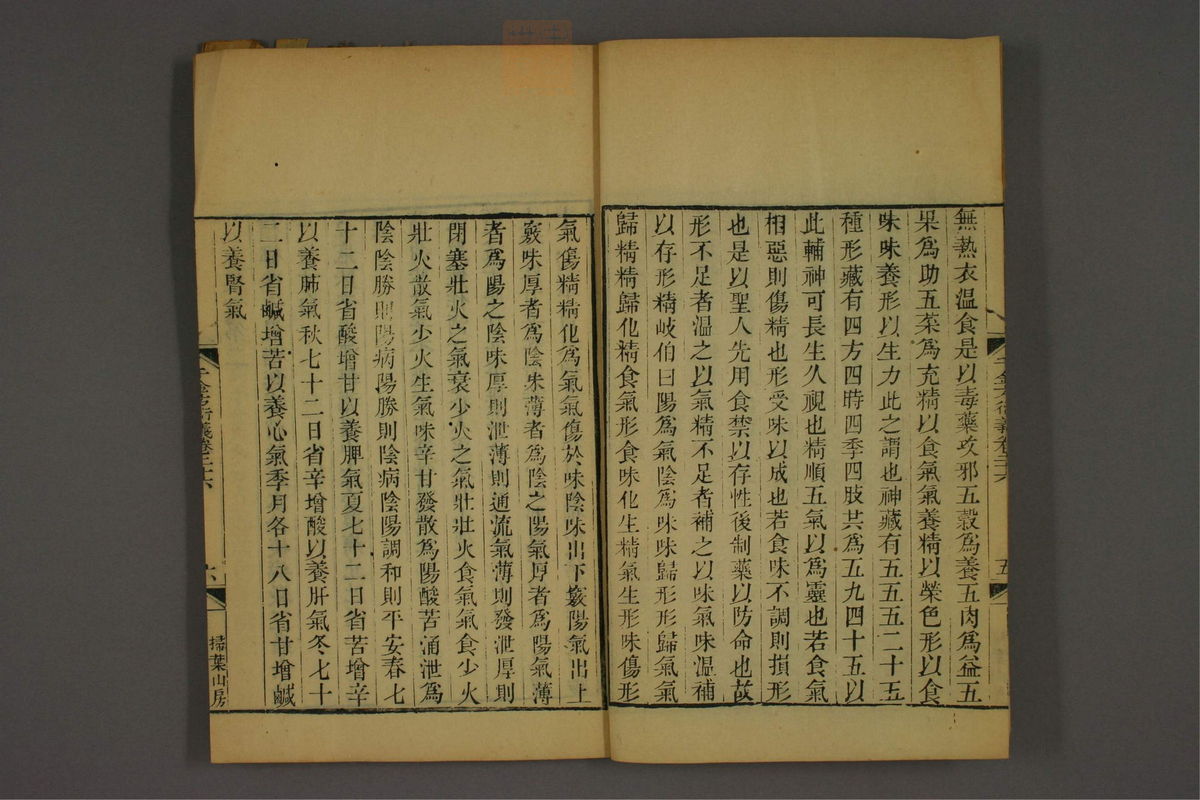 無熱衣温食是以毒藥攻邪五穀爲養五肉爲益五
果爲助五菜爲充精以食氣氣養精以榮色形以食
味味養形以生力此之謂也神藏有五五五二十五
種形藏有四方四時四季四肢共爲五九四十五以
此輔神可長生久視也精順五氣以爲靈也若食氣
相惡則傷精也形受味以成也若食味不調則損形
也是以聖人先用食禁以存性後制藥以防命也故
形不足者温之以氣精不足者補之以味氣味温補
以存形精岐伯曰陽爲氣陰爲味味歸形形歸氣氣
歸精精歸化精食氣形食味化生精氣生形味傷形
千金方衍義卷二十六
五
氣傷精精化爲氣氣傷於味陰味出下竅陽氣出上
竅味厚者爲陰味薄者爲陰之陽氣厚者爲陽氣薄
者爲陽之陰味厚則泄薄則通流氣薄則發泄厚則
閉塞壯火之氣衰少火之氣壯壯火食氣氣食少火
壯火散氣少火生氣味辛甘發散爲陽酸苦涌泄爲
陰陰勝則陽病陽勝則陰病陰陽調和則平安春七
十二日省酸增甘以養脾氣夏七十二日省苦增辛
以養肺氣秋七十二日省辛增酸以養肝氣冬七十
二日省鹹增苦以養心氣季月各十八日省甘增鹹
以養腎氣
千金方衍義卷二十六
六
掃葉山房